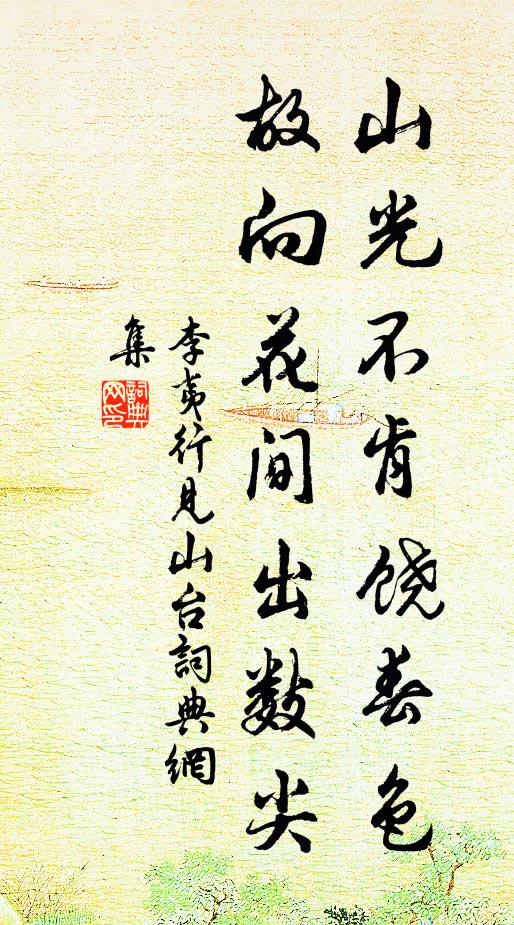 山光不肯饶春色
故向花间出数尖
李夷行见山台詞典網
集
詞典
网印